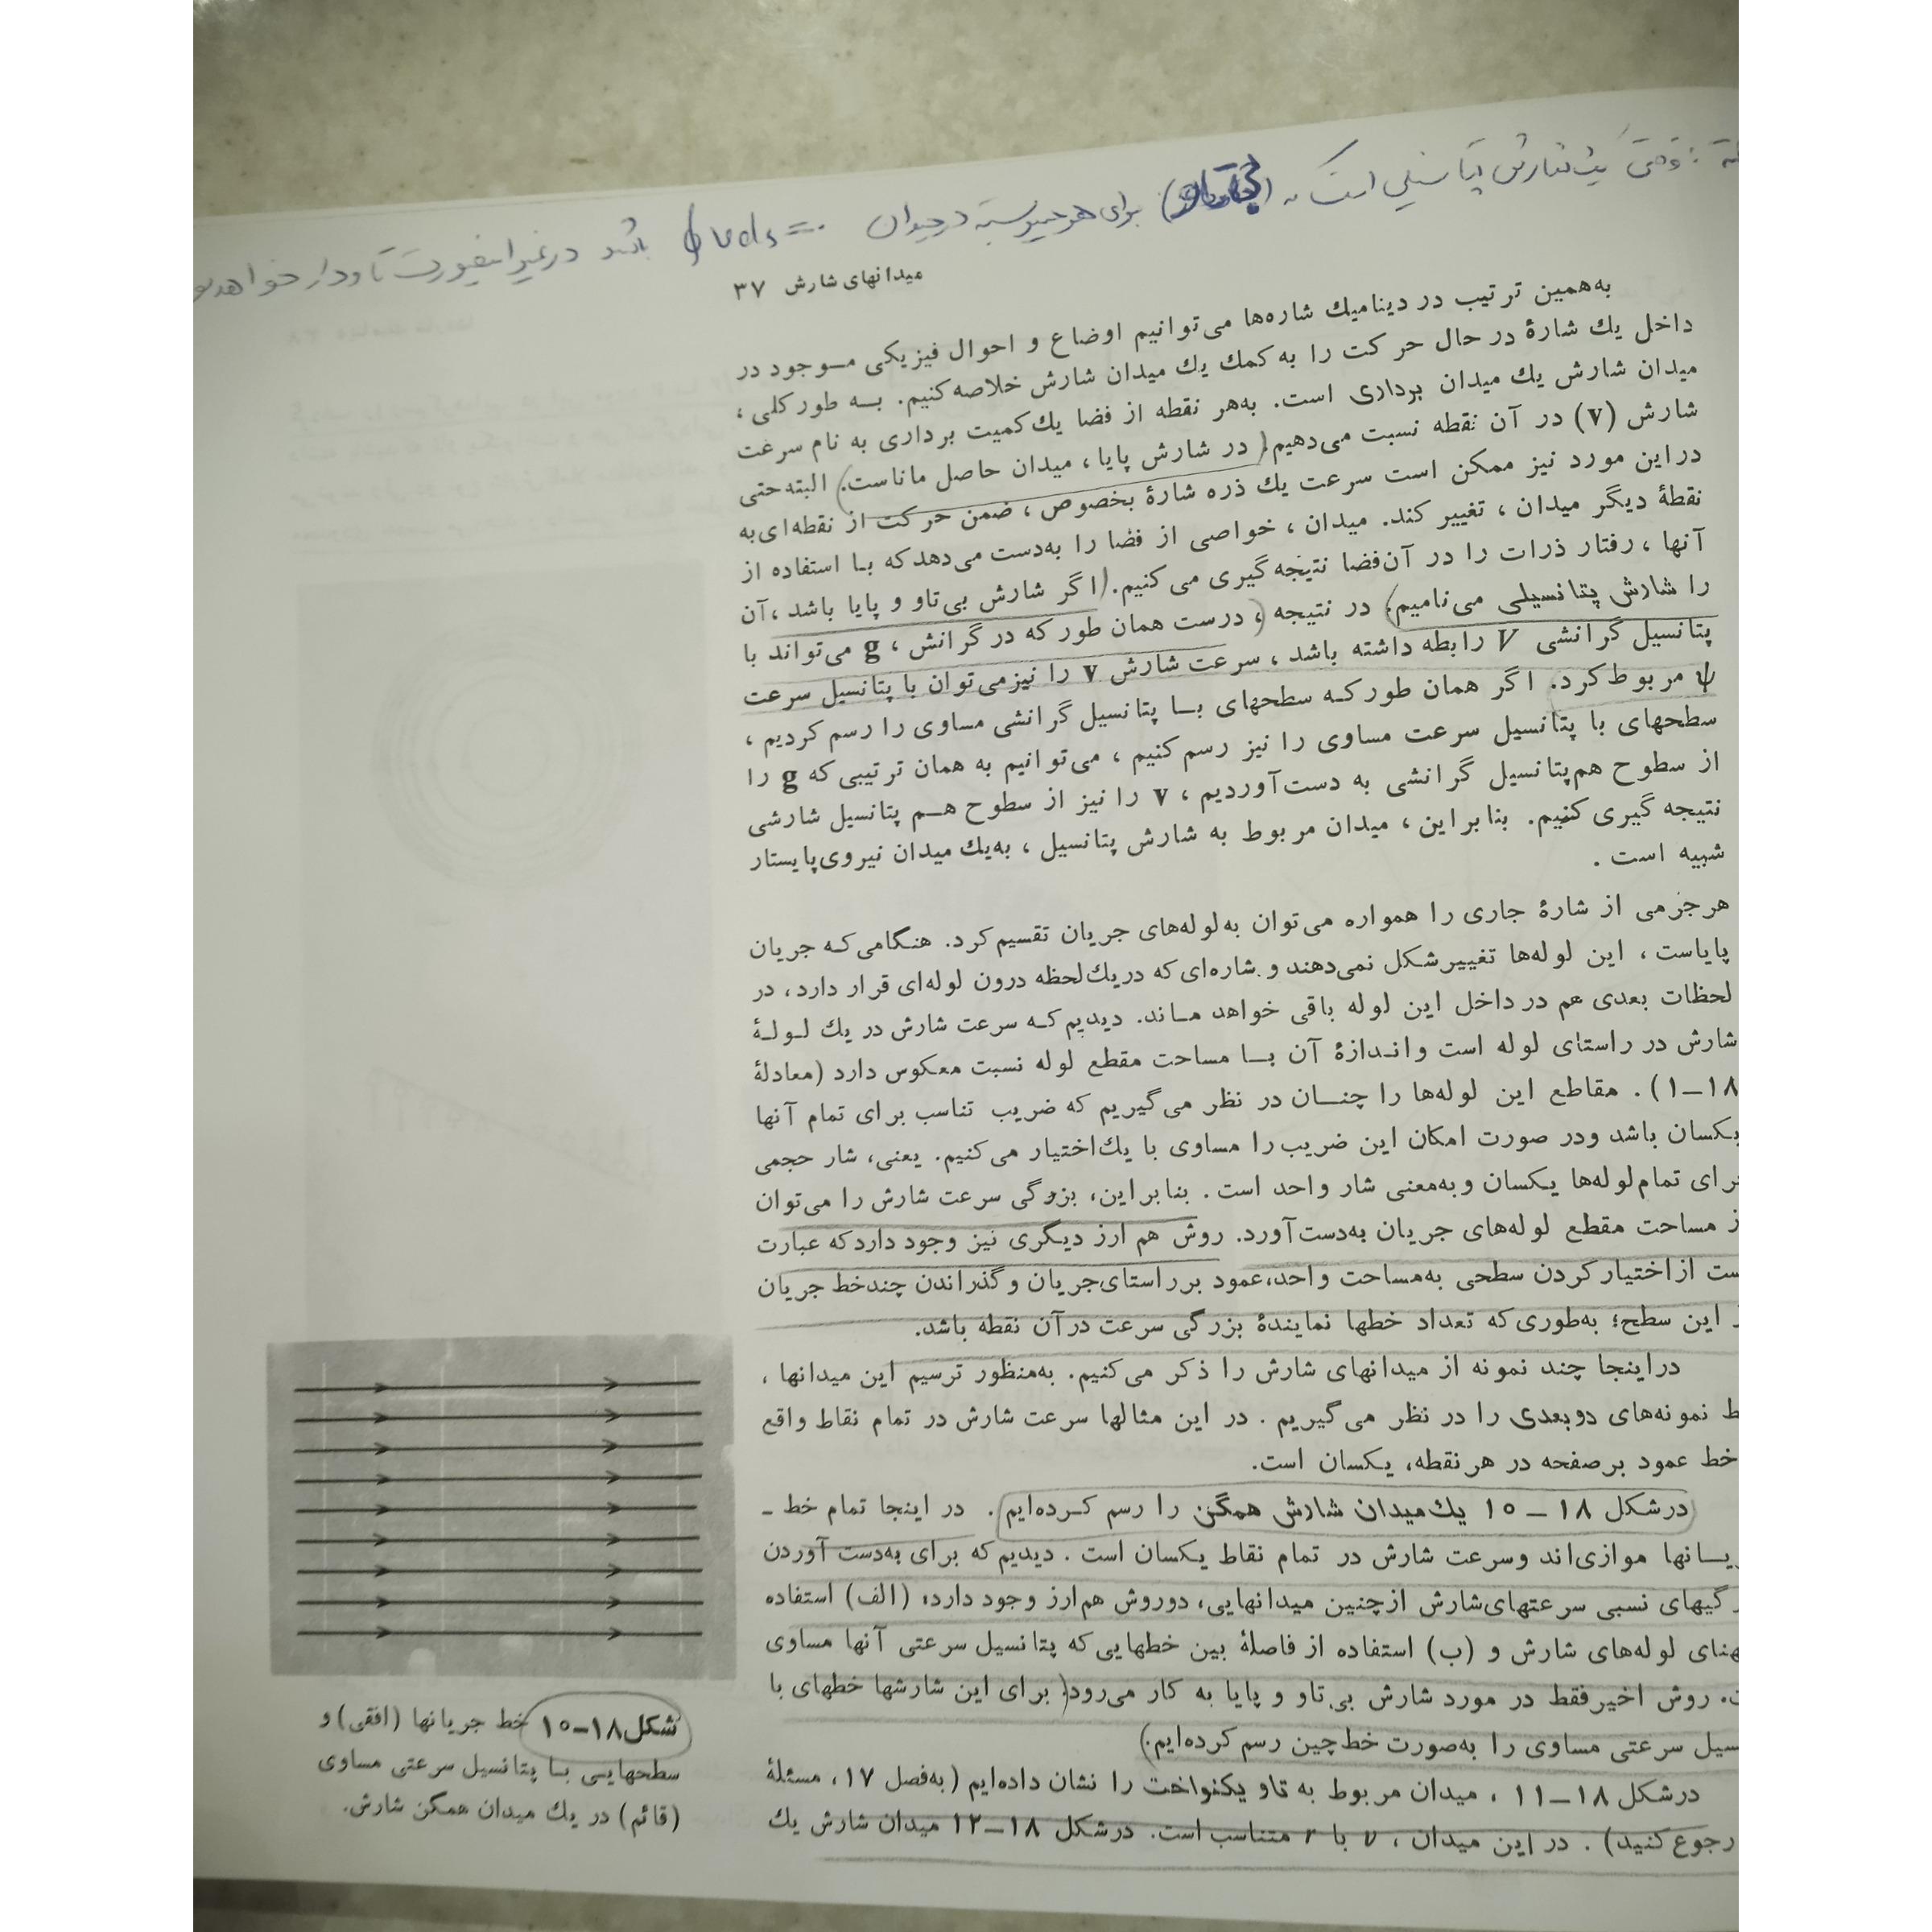 : وقتی یک شارش پتانسیلی است که (بی تاو) برای هر مسیر بسته در جریان ∮vds=۰ باشد در غیر اینصورت تاودار خواهد
میدانهای شارش ۳۷
به‌همین ترتیب در دینامیك شاره‌ها می‌توانیم اوضاع و احوال فیزیکی موجود در
داخل یك شارهٔ در حال حرکت را به کمك یك میدان شارش خلاصه کنیم. به طورکلی،
میدان شارش یك میدان برداری است. به‌هر نقطه از فضا یك کمیت برداری به نام سرعت
شارش (v) در آن نقطه نسبت می‌دهیم. (در شارش پایا، میدان حاصل ماناست.) البته حتی
دراین مورد نیز ممکن است سرعت یك ذره شارهٔ بخصوص، ضمن حرکت از نقطه‌ای‌به
نقطهٔ دیگر میدان، تغییر کند. میدان، خواصی از فضا را به‌دست می‌دهدکه با استفاده از
آنها، رفتار ذرات را در آن‌فضا نتیجه‌گیری می‌کنیم. (اگر شارش بی‌تاو و پایا باشد، آن
را شارش پتانسیلی می‌نامیم) در نتیجه (، درست همان طور که در گرانش، g می‌تواند با
پتانسیل گرانشی V رابطه داشته باشد، سرعت شارش v را نیزمی‌توان با پتانسیل سرعت
ψ مربوط کرد. اگر همان طورکه سطحهای با پتانسیل گرانشی مساوی را رسم کردیم،
سطحهای با پتانسیل سرعت مساوی را نیز رسم کنیم، می‌توانیم به همان ترتیبی‌که g را
از سطوح هم‌پتانسیل گرانشی به دست‌آوردیم، v را نیز از سطوح هم پتانسیل شارشی
نتیجه گیری کنیم. بنابراین، میدان مربوط به شارش پتانسیل، به‌یك میدان نیروی‌پایستار
شبیه است.
هرجزمی از شارهٔ جاری را همواره می‌توان به‌لوله‌های جریان تقسیم‌کرد. هنگامی‌که جریان
پایاست، این لوله‌ها تغییرشکل نمی‌دهند و شاره‌ای‌که دریك‌لحظه درون لوله‌ای قرار دارد، در
لحظات بعدی هم در داخل این لوله باقی خواهد ماند. دیدیم‌که سرعت شارش در یك لولهٔ
شارش در راستای لوله است و اندازهٔ آن با مساحت مقطع لوله نسبت معکوس دارد (معادلهٔ
۱۸–۱). مقاطع این لوله‌ها را چنان در نظر می‌گیریم که ضریب تناسب برای تمام آنها
یکسان باشد ودر صورت امکان این ضریب را مساوی با یك‌اختیار می‌کنیم. یعنی، شار حجمی
برای تمام‌لوله‌ها یکسان و به‌معنی شار واحد است. بنابراین، بزرگی سرعت شارش را می‌توان
از مساحت مقطع لوله‌های جریان به‌دست‌آورد. روش هم ارز دیگری نیز وجود داردکه عبارت
ست ازاختیارکردن سطحی به‌مساحت واحد،عمود برراستای‌جریان و گذراندن چندخط جریان
این سطح؛ به‌طوری‌که تعداد خطها نمایندهٔ بزرگی سرعت درآن نقطه باشد.
دراینجا چند نمونه از میدانهای شارش را ذکر می‌کنیم. به‌منظور ترسیم این میدانها،
ط نمونه‌های دوبعدی را در نظر می‌گیریم. در این مثالها سرعت شارش در تمام نقاط واقع
خط عمود برصفحه در هرنقطه، یکسان است.
درشکل ۱۸–۱۰ یك‌میدان شارش همگن را رسم کرده‌ایم. در اینجا تمام خط‌ـ
یانها موازی‌اند وسرعت شارش در تمام نقاط یکسان است. دیدیم که برای به‌دست آوردن
رگیهای نسبی سرعتهای‌شارش ازچنین میدانهایی، دوروش هم‌ارز وجود دارد، (الف) استفاده
هنای لوله‌های شارش و (ب) استفاده از فاصلهٔ بین خطهایی‌که پتانسیل سرعتی آنها مساوی
ت. روش اخیرفقط در مورد شارش بی‌تاو و پایا به کار می‌رود. (برای این شارشها خطهای با
سیل سرعتی مساوی را به‌صورت خط‌چین رسم کرده‌ایم.)
درشکل ۱۸–۱۱، میدان مربوط به تاو یکنواخت را نشان داده‌ایم (به‌فصل ۱۷، مسئلهٔ
رجوع کنید). در این میدان، v با r متناسب است. درشکل ۱۸–۱۲ میدان شارش یك
شکل۱۸–۱۰ خط جریانها (افقی) و
سطحهایی با پتانسیل سرعتی مساوی
(قائم) در یك میدان همگن شارش.